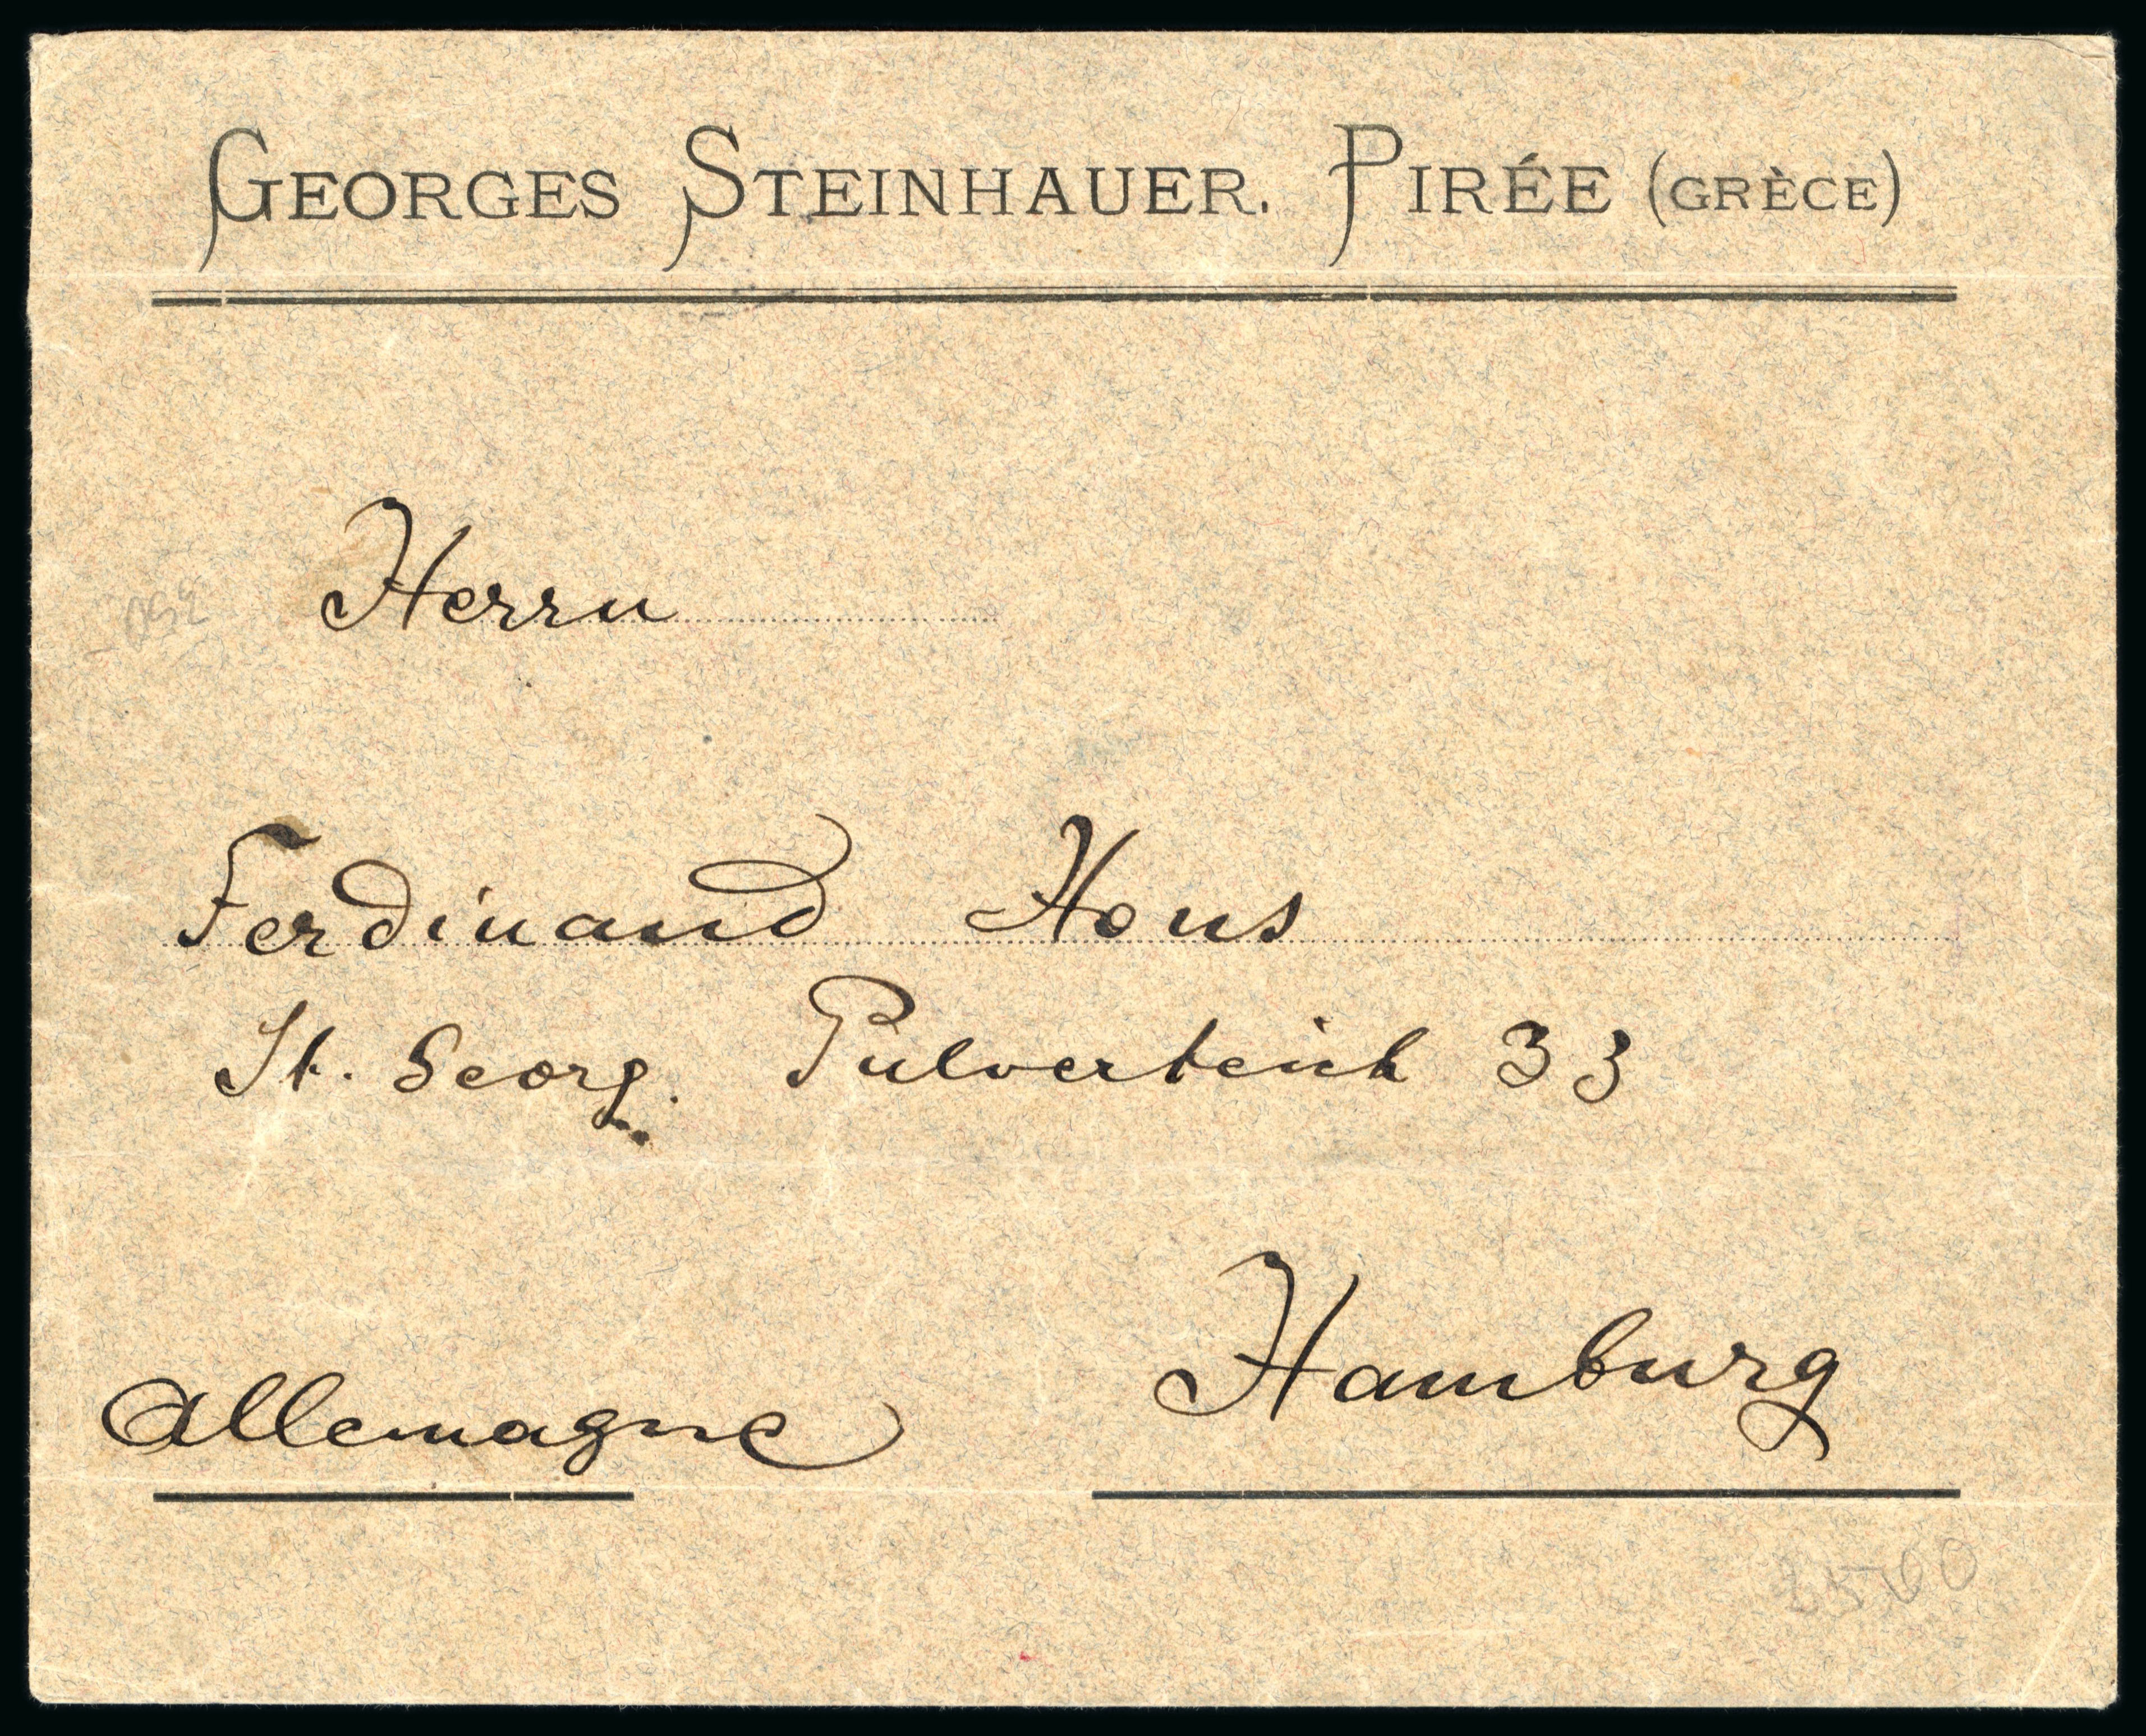 GEORGES STEINHAUER. PIRÉE (GRÈCE)
Herrn
Ferdinand Hons
St. Georg. Pulverteich 33
Hamburg
Allemagne
350